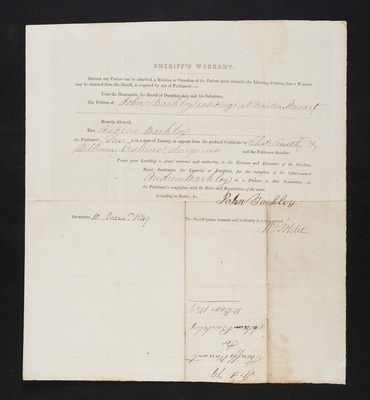 SHERIFF'S WARRANT.
BEFORE any Patient can be admitted, a Relation or Guardian of the Patient must subscribe the following Petition that a Warrant
may be obtained from the Sheriff, as required by Act of Parliament:—
Unto the Honourable the Sheriff of Dumfries-shire and his Substitutes.
The Petition of John Barkley residing at
Humbly Sheweth,
That Andrew Barkley
the Petitioner's Son is in a state of Lunacy, as appears from the prefixed Certificate by Chas. Smith &
William Erskine Surgeons and the Petitioners Schedule.
Prays your Lordship to grant warrant and authority to the Patrons and Directors of the Crichton
Royal Institution for Lunatics at Dumfries, for the reception of the before-named
Andrew Barkley as a Patient in that Institution, on
the Petitioner's complying with the Rules and Regulations of the same.
According to Justice, &c.
John Barkley
DUMFRIES, 10 1849 The Sheriff grants warrant and authority as craved.
Sheriff's Warrant
for
Andrew Barkley
10 1849